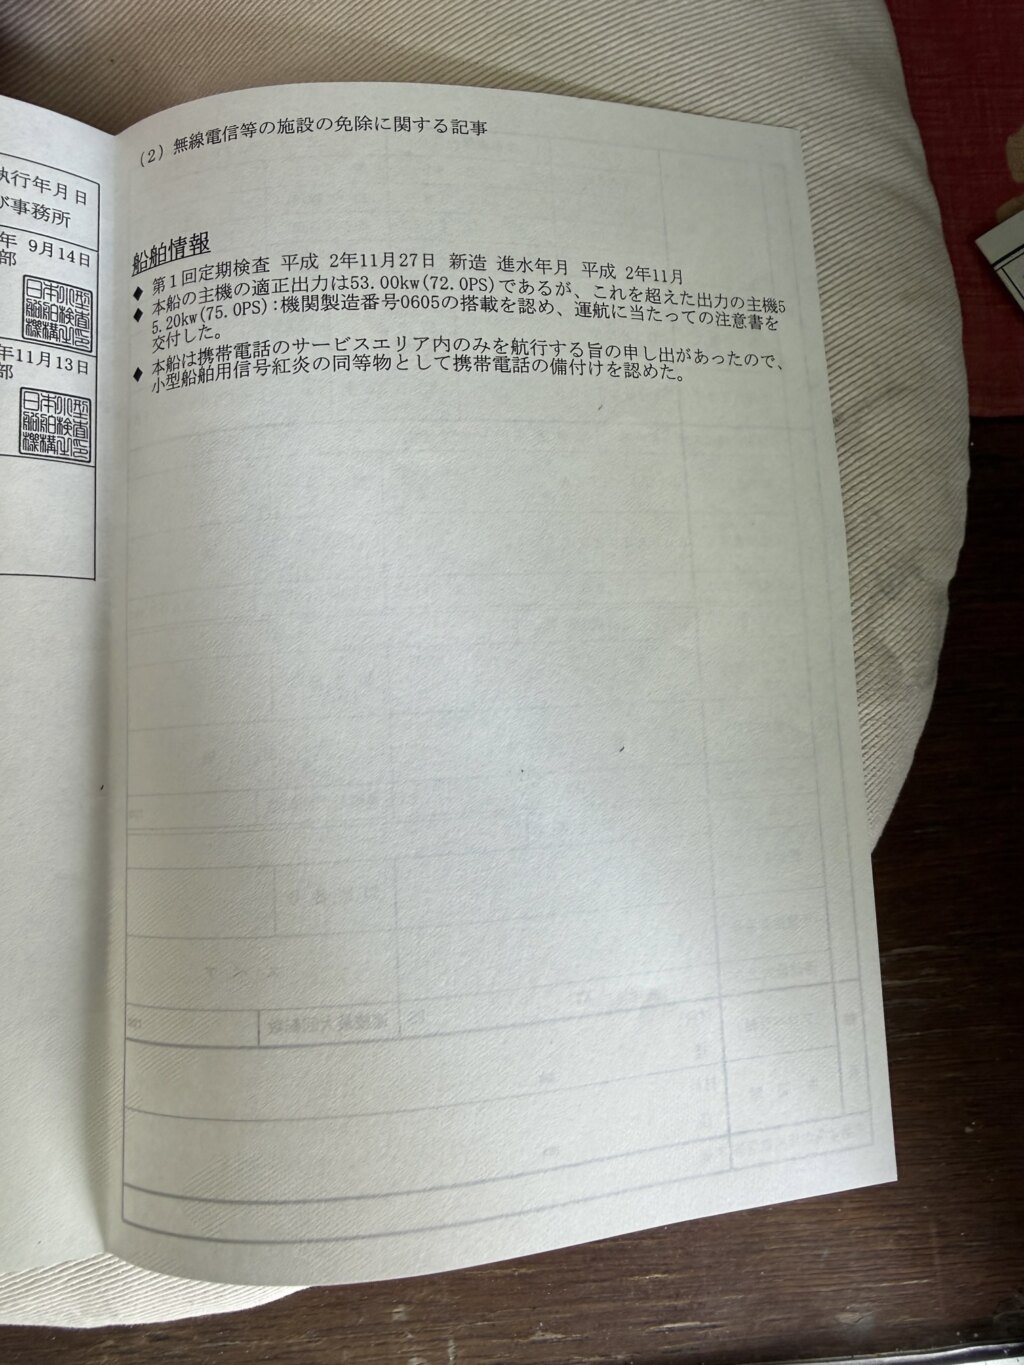 執行年月日
び事務所
年 9月14日
部
日本小型
船舶検査
機構之印
年11月13日
部
日本小型
船舶検査
機構之印
(2) 無線電信等の施設の免除に関する記事
船舶情報
◆ 第1回定期検査 平成 2年11月27日 新造 進水年月 平成 2年11月
◆ 本船の主機の適正出力は53.00kw(72.0PS)であるが、これを超えた出力の主機5
5.20kw(75.0PS):機関製造番号0605の搭載を認め、運航に当たっての注意書を
交付した。
◆ 本船は携帯電話のサービスエリア内のみを航行する旨の申し出があったので、
小型船舶用信号紅炎の同等物として携帯電話の備付けを認めた。